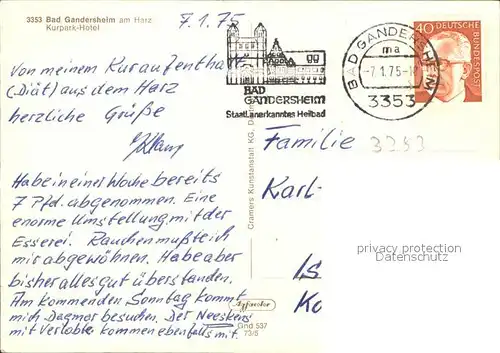 3353 Bad Gandersheim am Harz
Kurpark-Hotel
7.1.75
Von meinem Kuraufenthalt
(Diät) aus dem Harz
herzliche Grüße
Habe in einer Woche bereits
7 Pfd. abgenommen. Eine
enorme Umstellung mit der
Esserei. Rauchen mußte ich
mir abgewöhnen. Habe aber
bisher alles gut überstanden.
Am kommenden Sonntag kommt
mich Dagmar besuchen. Der
mit Verlobte kommen ebenfalls mit.
BAD
GANDERSHEIM
Staatl. anerkanntes Heilbad
BAD GANDERSHEIM
ma
-7.1.75-
3353
40 DEUTSCHE
BUNDESPOST
Familie
3353
Karl-
privacy protection
Datenschutz
Cramers Kunstanstalt KG,
Agfacolor
Gnd 537
73/5